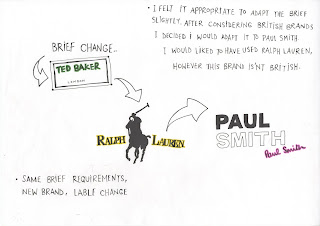 • I FELT IT APPROPRIATE TO ADAPT THE BRIEF
SLIGHTLY, AFTER CONSIDERING BRITISH BRANDS
I DECIDED I WOULD ADAPT IT TO PAUL SMITH.
I WOULD LIKED TO HAVE USED RALPH LAUREN,
HOWEVER THIS BRAND ISN'T BRITISH.
BRIEF CHANGE..
TED BAKER
LONDON
RALPH LAUREN
PAUL
SMITH
Paul Smith
• SAME BRIEF REQUIREMENTS,
NEW BRAND, LABLE CHANGE